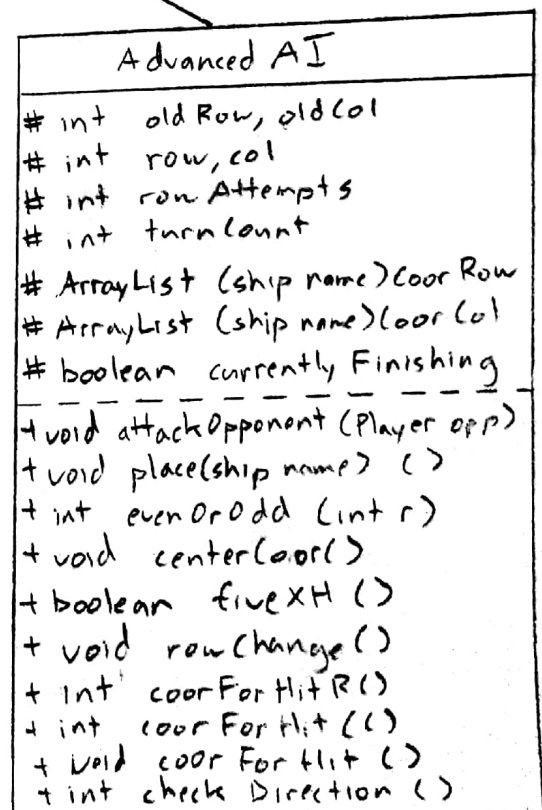 Advanced AI
# int oldRow, oldCol
# int row, col
# int rowAttempts
# int turnCount
# ArrayList (ship name)CoorRow
# ArrayList (ship name)CoorCol
# boolean currentlyFinishing
+ void attackOpponent (Player opp)
+ void place(ship name) ()
+ int evenOrOdd (int r)
+ void centerCoor()
+ boolean fiveXH ()
+ void rowChange ()
+ int coorForHitR()
+ int coorForHitC()
+ void coorForHit ()
+ int checkDirection ()